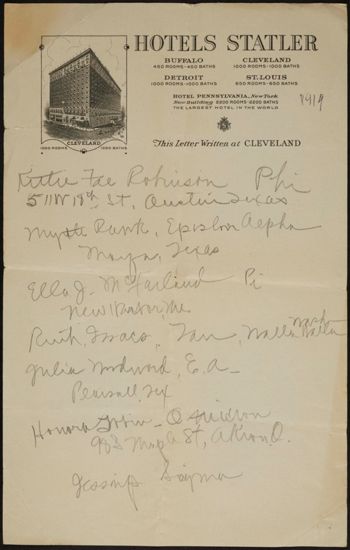 HOTELS STATLER
BUFFALO
450 ROOMS - 450 BATHS
CLEVELAND
1000 ROOMS - 1000 BATHS
DETROIT
1000 ROOMS - 1000 BATHS
ST. LOUIS
650 ROOMS - 650 BATHS
HOTEL PENNSYLVANIA, New York
New Building 2200 ROOMS - 2200 BATHS
THE LARGEST HOTEL IN THE WORLD
1919
CLEVELAND
1000 ROOMS 1000 BATHS
This Letter Written at CLEVELAND
Kittie Fae Robinson Phi
511 W 19th St, Austin Texas
Myrtle Epsilon Alpha
Texas
Ella J. McFarland Pi
New
Ruth Isaacs, Tau, Walla Walla
Wash
Julia Woodward, E.A
Pearsall, Tex
Honora Tobin - Omicron
983 Maple St, Akron, O.
Sigma